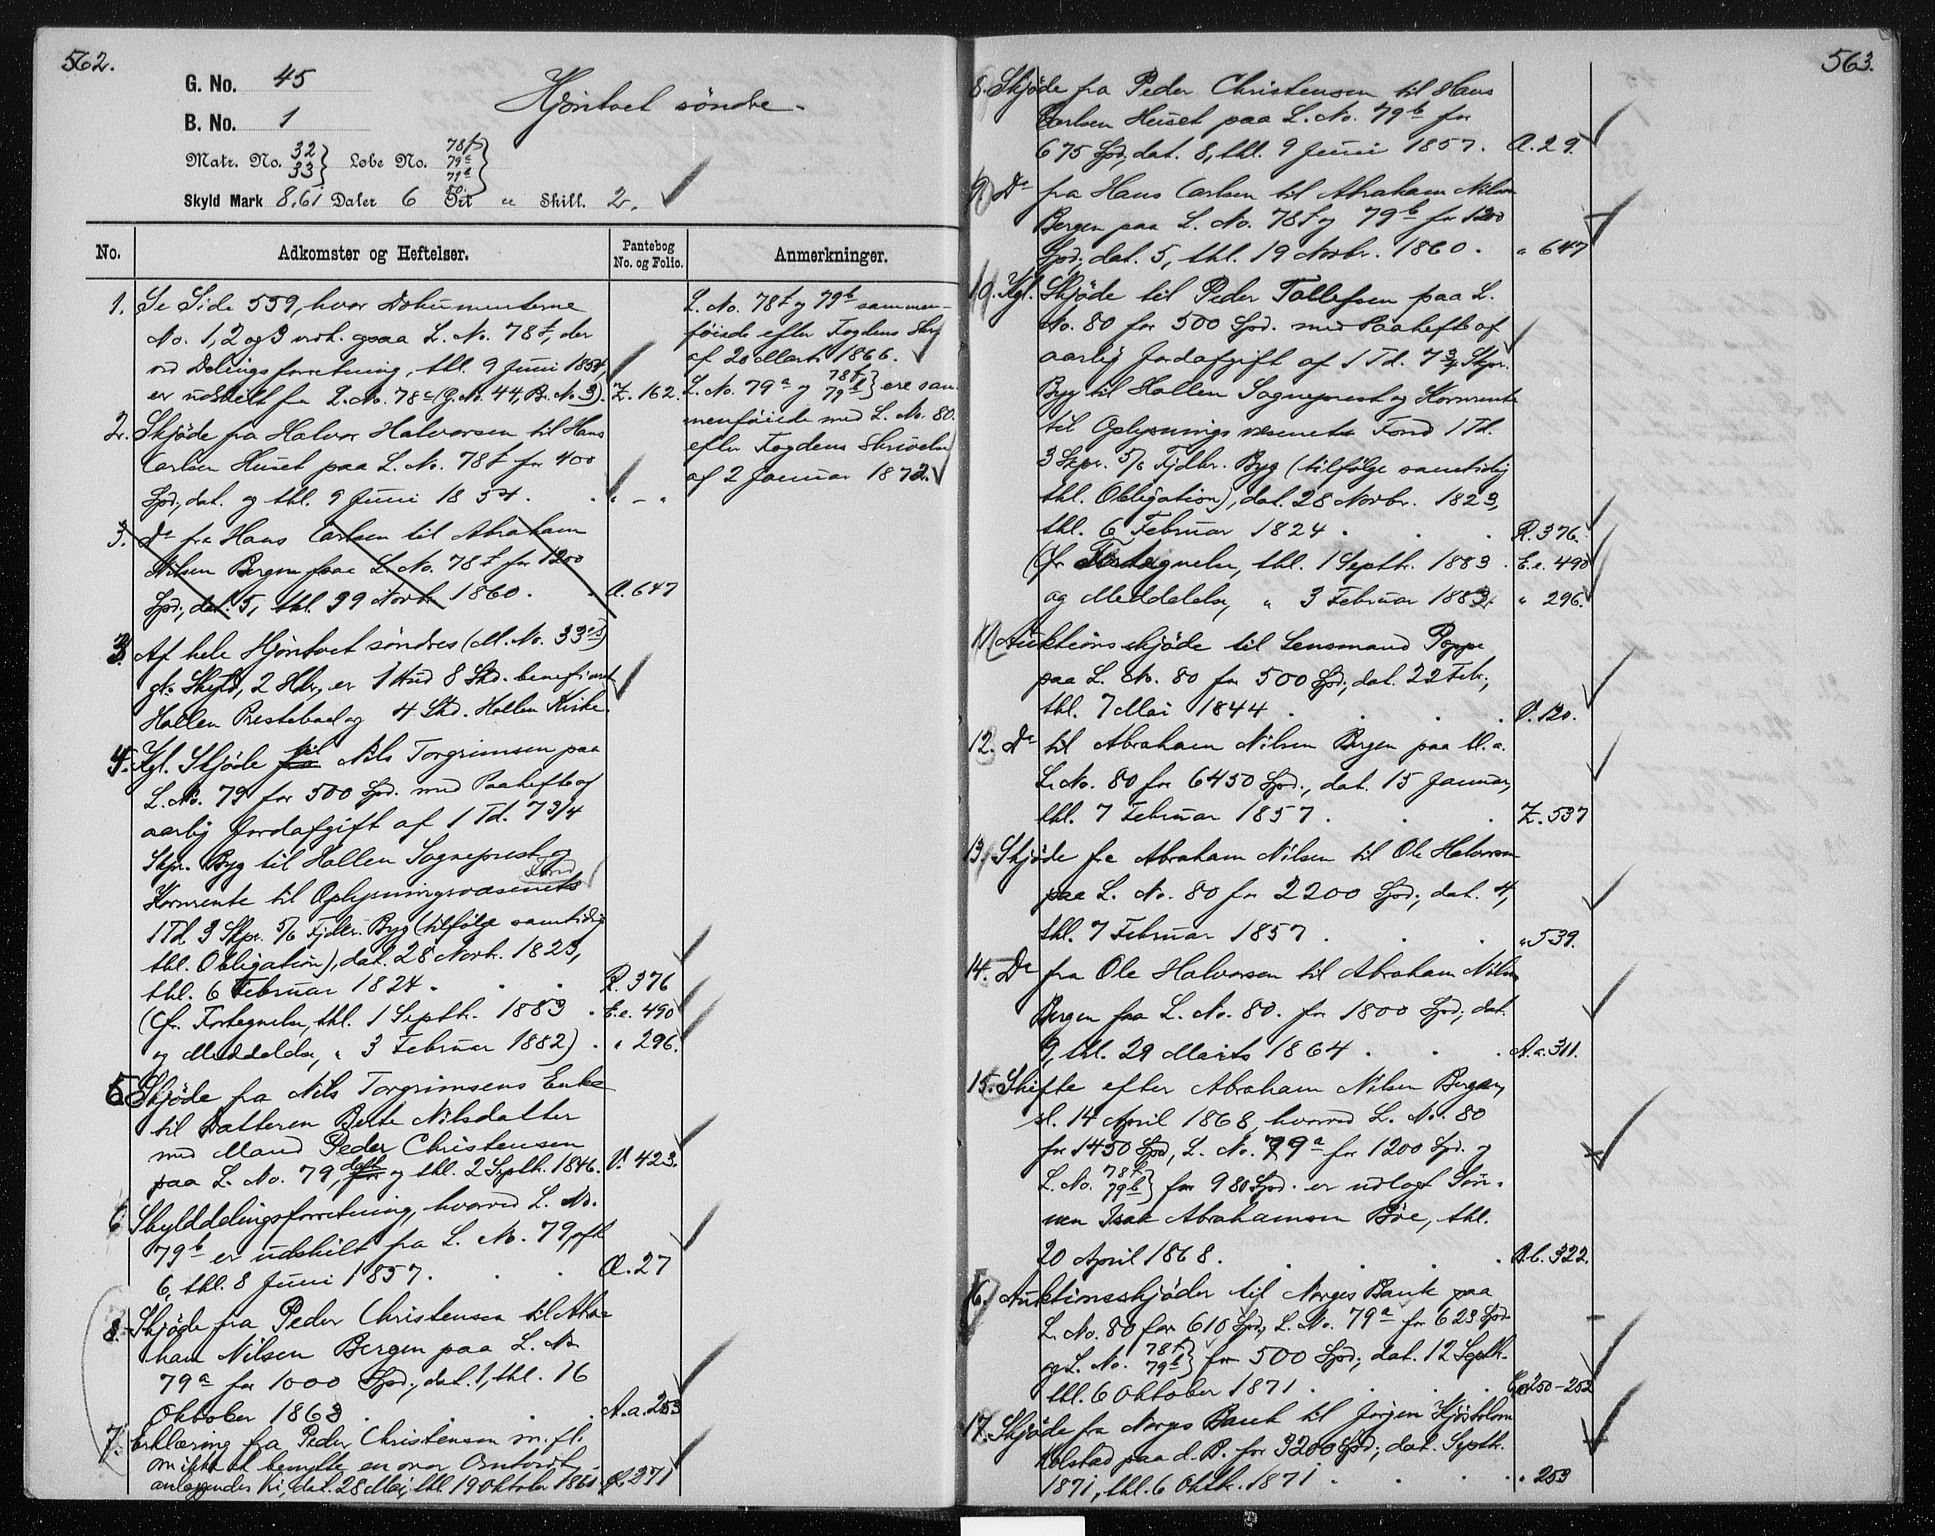 562.
G. No. 45
B. No. 1
Hjöntvet söndre.
Matr. No. 32 33 } Løbe No. 78f 79a 79b 80. }
Skyld Mark 8,61 Daler 6 Ort " Skill. 2.
No. Adkomster og Heftelser. Pantebog No. og Folio. Anmerkninger.
1. Se Side 559, hvor Dokumenterne
No. 1, 2 og 3 vedk. ogsaa L. No. 78f, der
ved Delingsforretning, thl. 9 Juni 1854,
er udskilt fra L. No. 78c (G. No. 44, B. No. 3). Z. 162.
2. Skjöde fra Halvor Halvorsen til Hans
Carlsen Huset paa L. No. 78f for 400
Spd., dat. og thl. 9 Juni 1854. " - "
3. Do fra Hans Carlsen til Abraham
Nilsen Bergen paa L. No. 78f for 1200
Spd., dat. 5, thl. 39 Novbr. 1860. A. 647
3. Af hele Hjöntvet söndres (M. No. 33)
gl. Skyld, 2 Hdr., er 1 Hud 8 Skd. beneficeret
Hollen Prestebord og 4 Skd. Hollen Kirke.
4. Kgl. Skjöde fra til Nils Torgrimsen paa
L. No. 79 for 500 Spd. med Paahefte af
aarlig Jordafgift af 1 Td. 7 3/4
Skpr. Byg til Hollen Sogneprest og
Kornrente til Oplysningsvæsenets Fond
1 Td 3 Skpr. 5/6 Fjdkr. Byg (tilfölge samtidig
thl. Obligation), dat. 28 Novbr. 1823,
thl. 6 Februar 1824. R. 376
(Cfr. Fortegnelse, thl. 1 Septbr. 1883. E.e. 490
og Meddelelse, " 3 Februar 1882). " 296.
5. Skjöde fra Nils Torgrimsens Enke
til Datteren Berte Nilsdatter
med Mand Peder Christensen
paa L. No. 79, for dat. og thl. 2 Septbr. 1846. V. 423.
6. Skylddelingsforretning, hvorved L. No.
79b er udskilt fra L. No. 79, afh.
6, thl. 8 Juni 1857. A. 27
8. Skjöde fra Peder Christensen til Abra-
ham Nilsen Bergen paa L. No.
79a for 1000 Spd., dat. 1, thl. 16
Oktober 1863. A.a. 253
7. Erklæring fra Peder Christensen m. fl.
om ikke at benytte en over
anlæggendes Vei, dat. 28 Mai, thl. 19 Oktober 271
L. No. 78f og 79b sammen-
föiede efter Fogdens Skr.
af 20 Marts 1866.
L. No. 79a og 78f 79b } ere sam-
menföiede med L. No. 80.
efter Fogdens Skrivelse
af 2 Januar 1872.
563.
8. Skjöde fra Peder Christensen til Hans
Carlsen Huset paa L. No. 79b for
675 Spd., dat. 8, thl. 9 Juni 1857. A. 29.
9. Do fra Hans Carlsen til Abraham Nilsen
Bergen paa L. No. 78f og 79b for 1200
Spd., dat. 5, thl. 19 Novbr. 1860. " 647
10. Kgl. Skjöde til Peder Tollefsen paa L.
No. 80 for 500 Spd. med Paahefte af
aarlig Jordafgift af 1 Td. 7 3/4 Skpr.
Byg til Hollen Sogneprest og Kornrente
til Oplysningsvæsenets Fond 1 Td.
3 Skpr. 5/6 Fjdkr. Byg (tilfölge samtidig
thl. Obligation), dat. 28 Novbr. 1823,
thl. 6 Februar 1824. R. 376.
(Cfr. Fortegnelse, thl. 1 Septbr. 1883. E.e. 490
og Meddelelse, " 3 Februar 1882. " 296.
11. Auktionsskjöde til Lensmand Poppe
paa L. No. 80 for 500 Spd., dat. 22 Febr.,
thl. 7 Mai 1844. V. 120.
12. Do til Abraham Nilsen Bergen paa bl. a.
L. No. 80 for 6450 Spd., dat. 15 Januar,
thl. 7 Februar 1857. Z. 537
13. Skjöde fra Abraham Nilsen til Ole Halvorsen
paa L. No. 80 for 2200 Spd., dat. 4,
thl. 7 Februar 1857. " 539.
14. Do fra Ole Halvorsen til Abraham Nilsen
Bergen paa L. No. 80. for 1800 Spd., dat.
9, thl. 29 Marts 1864. A.a. 311.
15. Skifte efter Abraham Nilsen Bergen,
sl. 14 April 1868, hvorved L. No. 80
for 1450 Spd., L. No. 79a for 1200 Spd. og
L. No. 78f 79b } for 980 Spd. er udlagt Søn-
nen Isak Abrahamsen Böe, thl.
20 April 1868. A.b. 322.
16. Auktionsskjöder til Norges Bank paa
L. No. 80 for 610 Spd., L. No. 79a for 623 Spd.
og L. No. 78f 79b } for 500 Spd., dat. 12 Septbr.
thl. 6 Oktober 1871. 250-252
17. Skjöde fra Norges Bank til Jörgen Kjöstolsen
Kolstad paa d. B. for 3200 Spd., dat. Septbr.
1871, thl. 6 Oktbr. 1871. " 253